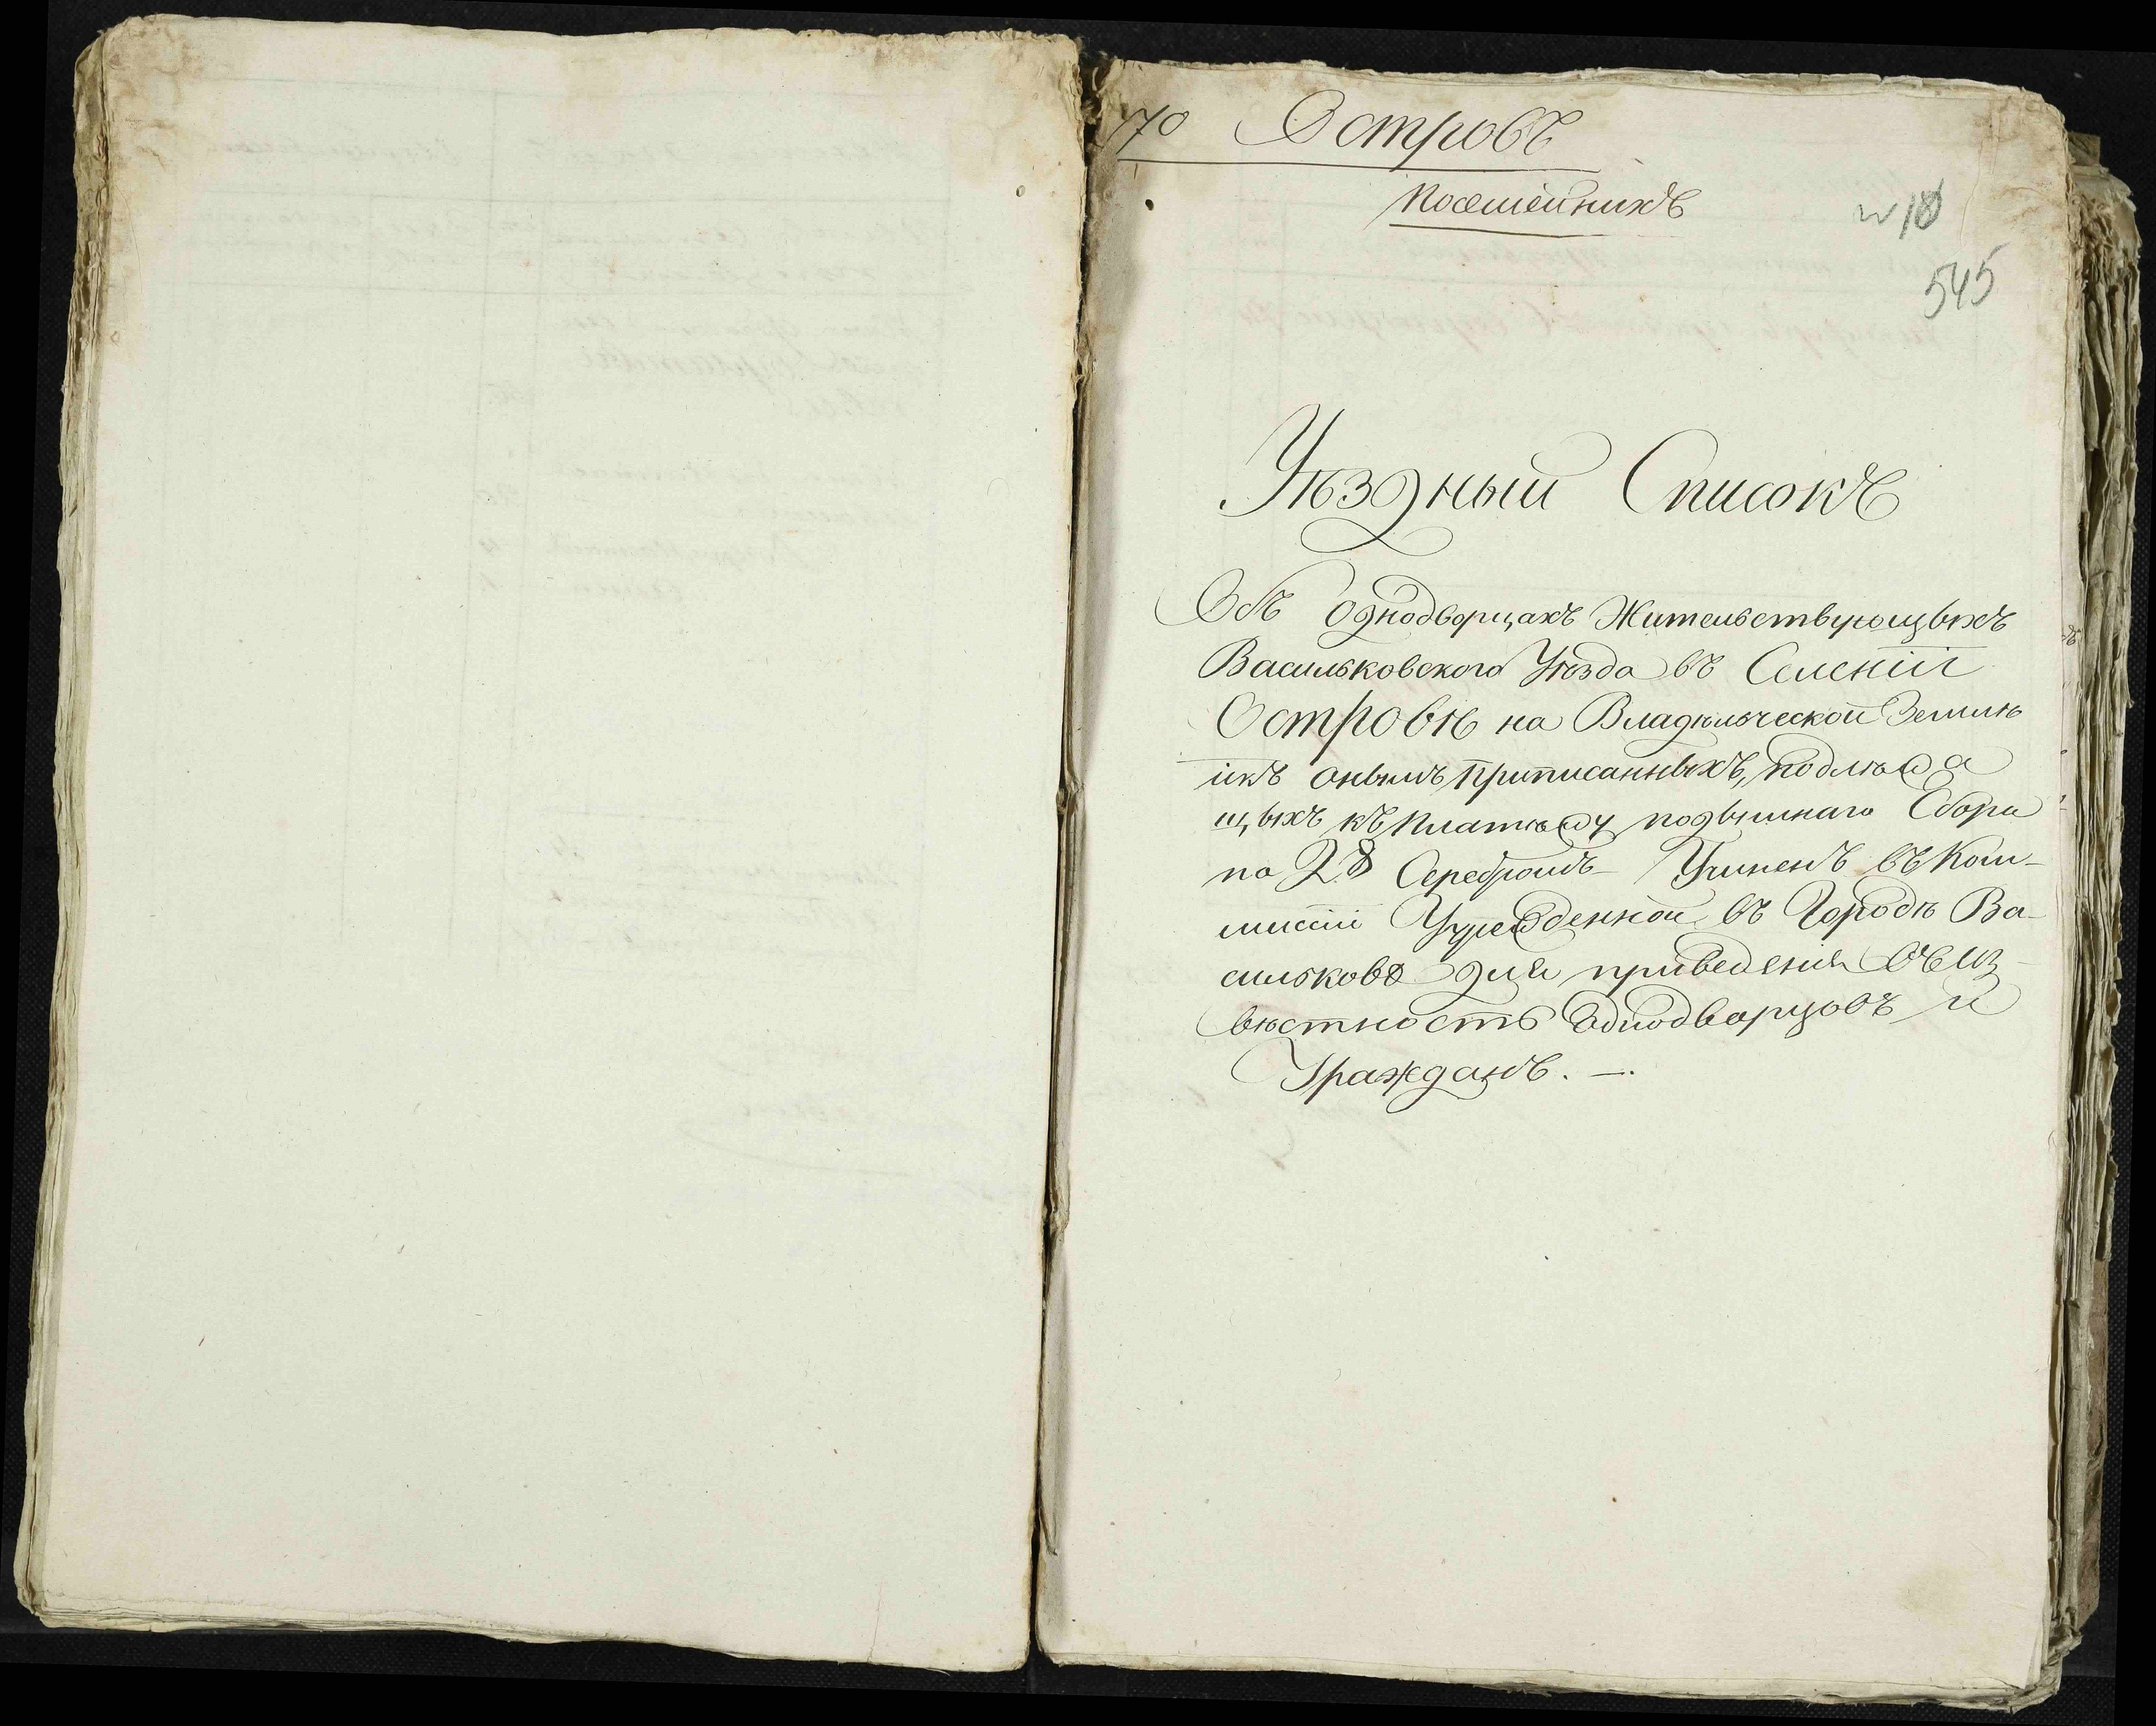 170 Островъ
Посемейникъ
№ 18
545
Уѣздный Списокъ
Объ Однодворцахъ Жительствующыхъ
Васильковского Уѣзда въ Селеніи
Островѣ на Владѣльческой Земмлѣ
икъ онымъ приписанныхъ, подлѣжа
щыхъ къ платѣжу подымнаго Сбора
по 2 Серебромъ Учиненъ въ Ком-
миссіи Учрежденной въ Городѣ Ва-
сильковѣ для приведенія въ Из-
вѣстность Однодворцовъ и
Гражданъ. —.